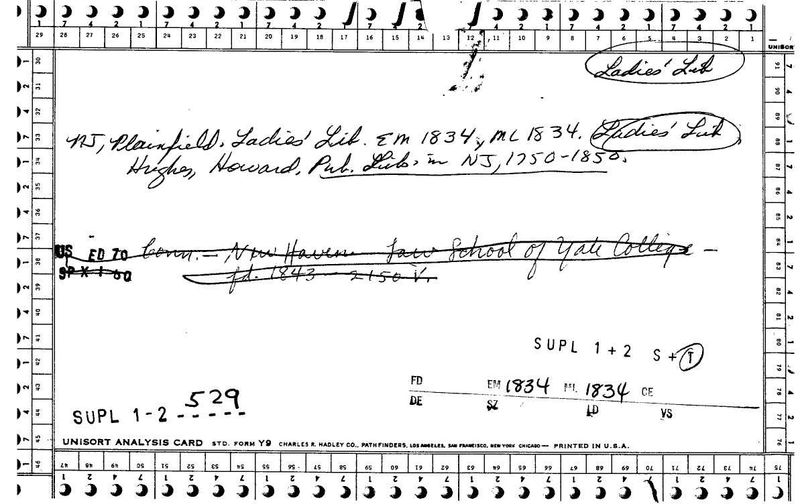 Ladies' Lib
NJ, Plainfield. Ladies' Lib. EM 1834, ML 1834. Ladies' Lib
Hughes, Howard, Pub. Libs. in NJ, 1750-1850.
US ED 70 Conn. - New Haven Law School of Yale College -
SP X 1 60 fd. 1843 - 2150 V.
SUPL 1+2 S+
FD EM 1834 ML 1834 CE
DE SZ LD VS
SUPL 1-2 529
UNISORT ANALYSIS CARD STD. FORM Y9 CHARLES R. HADLEY CO., PATHFINDERS, LOS ANGELES, SAN FRANCISCO, NEW YORK CHICAGO — PRINTED IN U.S.A.